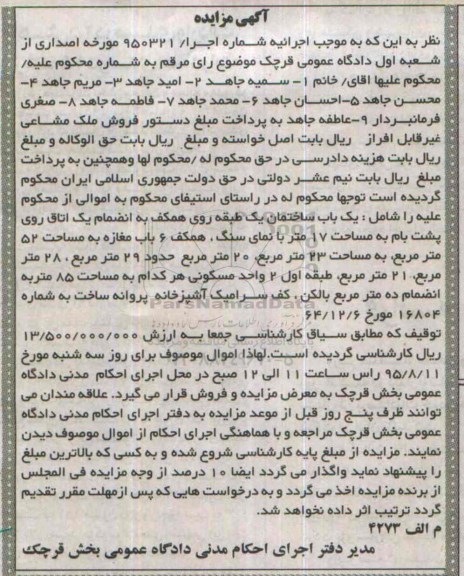 آگهی مزایده
نظر به این که به موجب اجرائیه شماره اجرا/ ۹۵۰۳۲۱ مورخه اصداری از
شعبه اول دادگاه عمومی قرچک موضوع رای مرقم به شماره محکوم علیه/
محکوم علیها اقای/ خانم ۱- سمیه جاهد ۲- امید جاهد ۳- مریم جاهد ۴-
محسن جاهد ۵-احسان جاهد ۶- محمد جاهد ۷- فاطمه جاهد ۸- صغری
فرمانبردار ۹-عاطفه جاهد به پرداخت مبلغ دستور فروش ملک مشاعی
غیرقابل افراز ریال بابت اصل خواسته و مبلغ ریال بابت حق الوکاله و مبلغ
ریال بابت هزینه دادرسی در حق محکوم له /محکوم لها وهمچنین به پرداخت
مبلغ ریال بابت نیم عشر دولتی در حق دولت جمهوری اسلامی ایران محکوم
گردیده است توجها محکوم له در راستای استیفای محکوم به اموالی از محکوم
علیه را شامل : یک باب ساختمان یک طبقه روی همکف به انضمام یک اتاق روی
پشت بام به مساحت ۱۷ متر با نمای سنگ ، همکف ۶ باب مغازه به مساحت ۵۲
متر مربع، به مساحت ۲۳ متر مربع، ۲۰ متر مربع حدود ۲۹ متر مربع ، ۲۸ متر
مربع، ۲۱ متر مربع، طبقه اول ۲ واحد مسکونی هر کدام به مساحت ۸۵ متربه
انضمام ده متر مربع بالکن ، کف سرامیک آشپزخانه پروانه ساخت به شماره
۱۶۸۰۴ مورخ ۶۴/۱۲/۶
توقیف که مطابق سیاق کارشناسی جمعا به ارزش ۱۳/۵۰۰/۰۰۰/۰۰۰
ریال کارشناسی گردیده است.لهذا اموال موصوف برای روز سه شنبه مورخ
۹۵/۸/۱۱ راس ساعت ۱۱ الی ۱۲ صبح در محل اجرای احکام مدنی دادگاه
عمومی بخش قرچک به معرض مزایده و فروش قرار می گیرد. علاقه مندان می
توانند ظرف پنج روز قبل از موعد مزایده به دفتر اجرای احکام مدنی دادگاه
عمومی بخش قرچک مراجعه و با هماهنگی اجرای احکام از اموال موصوف دیدن
نمایند. مزایده از مبلغ پایه کارشناسی شروع شده و به کسی که بالاترین مبلغ
را پیشنهاد نماید واگذار می گردد ایضا ۱۰ درصد از وجه مزایده فی المجلس
از برنده مزایده اخذ می گردد و به درخواست هایی که پس ازمهلت مقرر تقدیم
گردد ترتیب اثر داده نخواهد شد.
م الف ۴۲۷۳
مدیر دفتر اجرای احکام مدنی دادگاه عمومی بخش قرچک
ParsNamadData